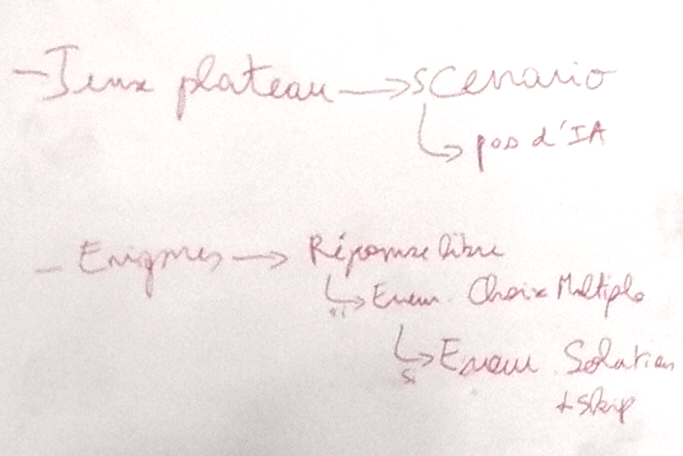 - Jeux plateau → scenario
↳ pas d'IA
- Enigmes → Réponse libre
↳ si Erreur Choix Multiple
↳ si Erreur Solution
+ skip